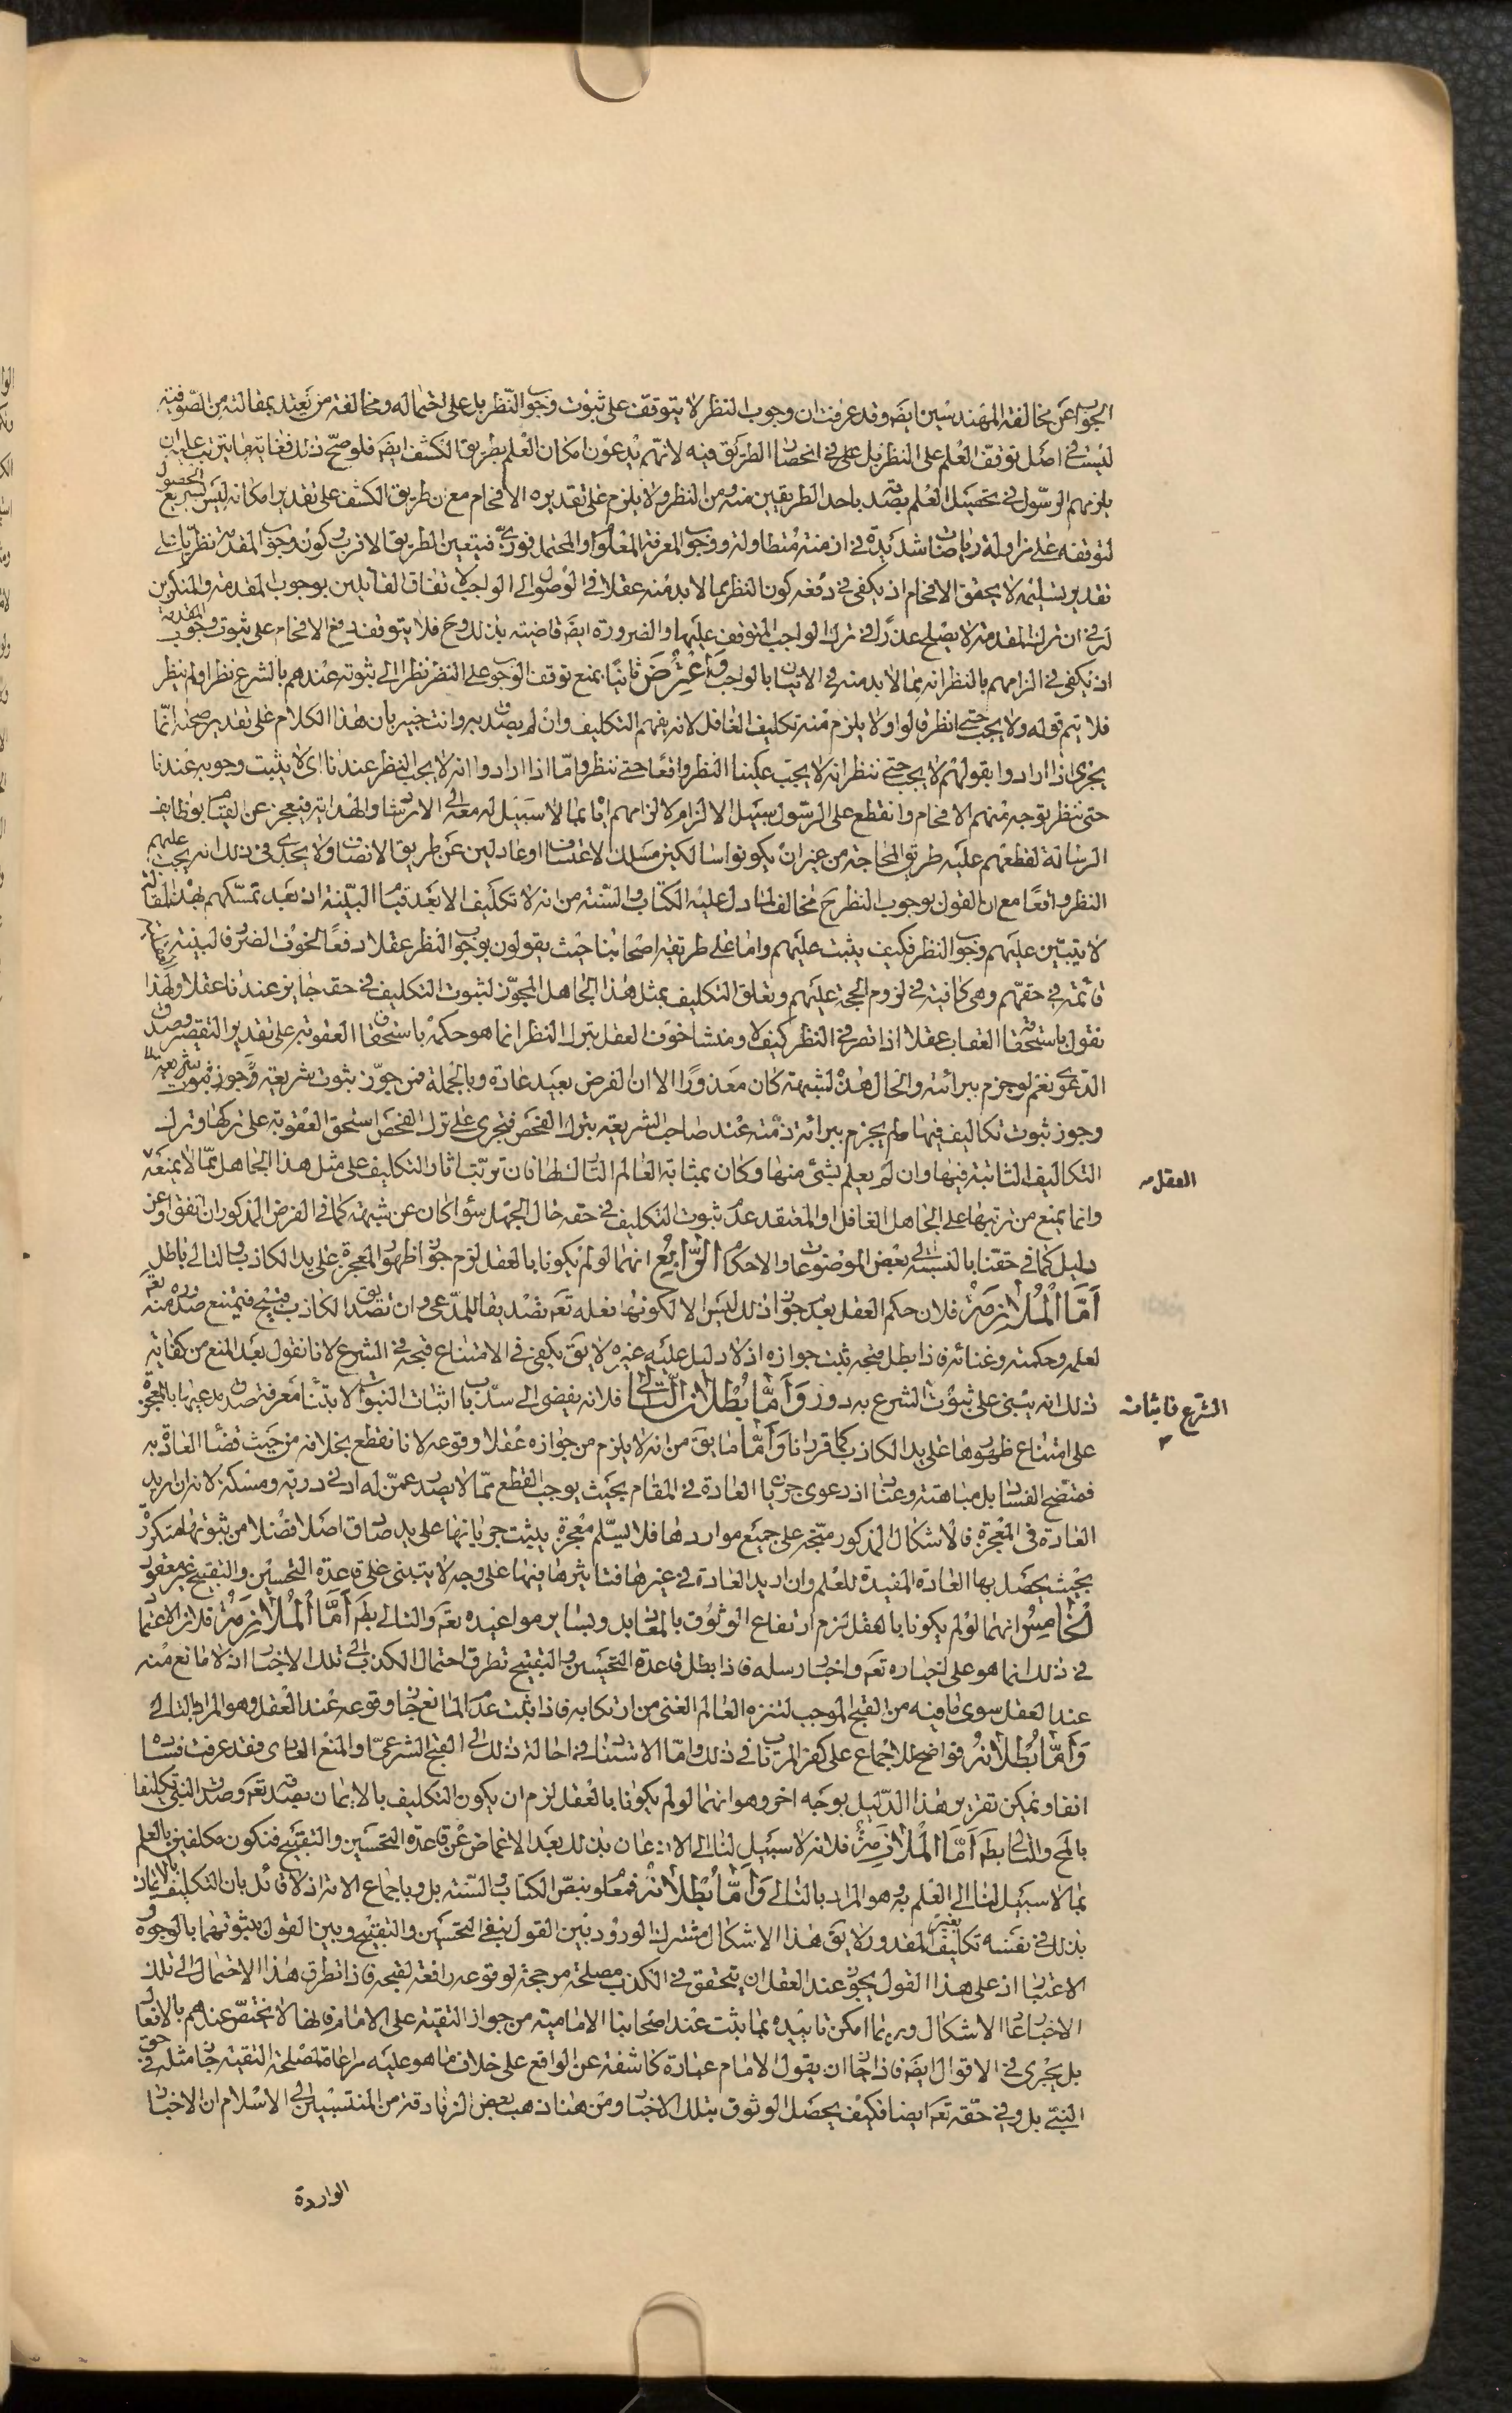 الجواب عن مخالفة المهندسين ايضا وقد عرفت ان وجوب النظر لا يتوقف على ثبوت وجوب النظر بل على احتماله ومخالفة من يعتد بمقالته من الصوفية
ليس في اصل توقف العلم على النظر بل على في انحصار الطريق فيه لانهم يدعون امكان العلم بطريق الكشف ايضا فلو صح ذلك فغايتها يترتب عليه ان
يلزمهم الرسول في تحصيل العلم بصدقه باحد الطريقين منه ومن النظر ولا يلزم على تقديره الافحام مع ان طريق الكشف على تقدير امكانه ليس بسريع الحصول
لتوقفه على مزاولة رياضات شديدة في ازمنة متطاولة ووجوب المعرفة المعلوم او المحتمل فوري فيتعين الطريق الاقرب وكون وجوب المقدمة نظريا على
تقدير تسليمه لا يحقق الافحام اذ يكفي في دفعه كون النظر مما لا بد منه عقلا في الوصول الى الواجب لاتفاق القائلين بوجوب المقدمة والمنكرين
له في ان ترك المقدمة لا يصلح عذرا في ترك الواجب المتوقف عليها والضرورة ايضا قاضية بذلك وح فلا يتوقف دفع الافحام على ثبوت وجوب المقدمة
اذ يكفي في الزامهم بالنظر انه مما لا بد منه في الاتيان بالواجب واعترض ثانيا بمنع توقف الوجوب على النظر نظرا الى ثبوته عندهم بالشرع نظر او لم ينظر
فلا يتم قوله ولا يجب حتى انظر قالوا ولا يلزم منه تكليف الغافل لانه يفهم التكليف وان لم يصدق به وانت خبير بان هذا الكلام على تقدير صحته انما
يجري اذا ارادوا بقولهم لا يجب حتى ننظر انه لا يجب علينا النظر واقعا حتى ننظر واما اذا ارادوا انه لا يجب النظر عندنا اي لا يثبت وجوبه عندنا
حتى ننظر توجه منهم الافحام وانقطع على الرسول سبيل الالزام لالزامهم اياه بما لا سبيل له معه الى الارشاد والهداية فيعجز عن القيام بوظائف
الرسالة لقطعهم عليه طريق المحاجة من غير ان يكونوا سالكين مسلك الاعتساف او عادلين عن طريق الانصاف ولا يجدي في ذلك انه يجب عليهم
النظر واقعا مع ان القول بوجوب النظر ح مخالف لما دل عليه الكتاب والسنة من انه لا تكليف الا بعد قيام البينة اذ بعد تمسكهم بهذه المقالة
لا يتبين عليهم وجوب النظر فكيف يثبت عليهم واما على طريقة اصحابنا حيث يقولون بوجوب النظر عقلا دفعا لخوف الضرر فالبينة
قائمة في حقهم وهي كافية في لزوم الحجة عليهم وتعلق التكليف بمثل هذا الجاهل المجوز لثبوت التكليف في حقه جايز عندنا عقلا ولهذا
نقول باستحقاقه العقاب عقلا اذا قصر في النظر كيف لا ومنشا خوف العقل بترك النظر انما هو حكمه باستحقاق العقوبة على تقدير التقصير وصدق
الدعوى نعم لو جزم ببرائته والحال هذه لشبهة كان معذورا الا ان الفرض بعيد عادة وبالجملة فمن جوز ثبوت شريعة وجوز ثبوت شريعة
وجوز ثبوت تكاليف فيها ولم يجزم ببرائة ذمته عند صاحب الشريعة بترك الفحص فتجرى على ترك الفحص استحق العقوبة على تركها وترك
التكاليف الثابتة فيها وان لم يعلم بشئ منها وكان بمثابة العالم التارك لها فان ترتب اثار التكليف على مثل هذا الجاهل مما لا يمنعه
العقل
وانما يمنع من ترتبها على الجاهل الغافل او المعتقد عدم ثبوت التكليف في حقه حال الجهل سواء كان عن شبهة كما في الفرض المذكور ان اتفق او عن
دليل كما في حقنا بالنسبة الى بعض الموضوعات والاحكام الرابع انهما لو لم يكونا بالعقل لزم جواز ظهور المعجزة على يد الكاذب والتالي باطل
اما الملازمة فلان حكم العقل بعدم جواز ذلك ليس الا لكونها فعله تعم تصديقا للمدعي وان تصديق الكاذب قبيح فيمتنع صدوره منه تعم
لعلمه وحكمته وغنائه فاذا بطل قبحه ثبت جوازه اذ لا دليل عليه غيره لا يق يكفي في الامتناع قبحه في الشرع لانا نقول بعد المنع من كفاية
ذلك انه يبتني على ثبوت الشرع به دور واما بطلان التالي فلانه يفضي الى سد باب اثبات النبوات لابتناء معرفة صدق مدعيها بالمعجزة
الشرع فاثباته
على امتناع ظهورها على يد الكاذب كما قررنا واما ما يق من انه لا يلزم من جوازه عقلا وقوعه لانا نقطع بخلافه من حيث قضاء العادة به
فمتضح الفساد بل مباهتة وعناد اذ دعوى جريان العادة في المقام بحيث يوجب القطع مما لا يصدر عمن له ادنى دربة ومسكة لانه ان اريد
العادة في المعجزة فالاشكال المذكور متجه على جميع مواردها فلا يسلم معجزة يثبت جريانها على يد صادق اصلا فضلا من ثبوتها متكررة
بحيث يحصل بها العادة المفيدة للعلم وان اريد العادة في غيرها فتاثيرها فيها على وجه لا يبتني على قاعدة التحسين والتقبيح غير معقول
الخامس انهما لو لم يكونا بالعقل لزم ارتفاع الوثوق بالمعاد وبساير مواعيده تعم والتالي بط اما الملازمة فلان الاعتماد
في ذلك انما هو على اخباره تعم واخبار رسله فاذا بطل قاعدة التحسين والتقبيح تطرق احتمال الكذب الى تلك الاخبار اذ لا مانع منه
عند العقل سوى ما فيه من القبح الموجب لتنزه العالم الغني من ارتكابه فاذا ثبت عدم المانع جاز وقوعه عند العقل وهو المراد بالتالي
واما بطلانه فواضح للاجماع على كفر المرتاب في ذلك واما الاستناد في احالة ذلك الى القبح الشرعي او المنع العادي فقد عرفت فساده
انفا ويمكن تقرير هذا الدليل بوجه اخر وهو انهما لو لم يكونا بالعقل لزم ان يكون التكليف بالايمان بصدقه تعم وصدق النبي تكليفا
بالمح والتالي بط اما الملازمة فلانه لا سبيل لنا الى الاذعان بذلك بعد الاغماض عن قاعدة التحسين والتقبيح فنكون مكلفين بالعلم
بما لا سبيل لنا الى العلم به وهو المراد بالتالي واما بطلانه فمعلوم بنص الكتاب والسنة بل وباجماع الامة اذ لا قائل بان التكليف بالايمان
بذلك في نفسه تكليف بغير مقدور ولا يق هذا الاشكال مشترك الورود بين القول بنفي التحسين والتقبيح وبين القول بثبوتهما بالوجوه
الاعتبار اذ على هذا القول يجوز عند العقل ان يتحقق في الكذب مصلحة مرجحة لوقوعه رافعة لقبحه فاذا تطرق هذا الاحتمال الى تلك
الاخبار عاد الاشكال وربما امكن تاييده بما يثبت عند اصحابنا الامامية من جواز التقية على الامام فانها لا تختص عندهم بالافعال
بل يجري في الاقوال ايضا فاذا جاز ان يقول الامام عبارة كاشفة عن الواقع على خلاف ما هو عليه مراعاة لمصلحة التقية جاز مثله في حق
النبي بل وفي حقه تعم ايضا فكيف يحصل الوثوق بتلك الاخبار ومن هنا ذهب بعض الزنادقة من المنتسبين الى الاسلام ان الاخبار
الواردة